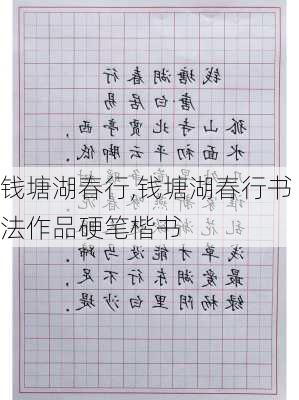 钱塘湖春行
唐白居易
孤山寺北贾亭西，
水面初平云脚低。
钱塘湖春行,钱塘湖春行书
法作品硬笔楷书
浅草才能没马蹄。
最爱湖东行不足，
绿杨阴里白沙堤。